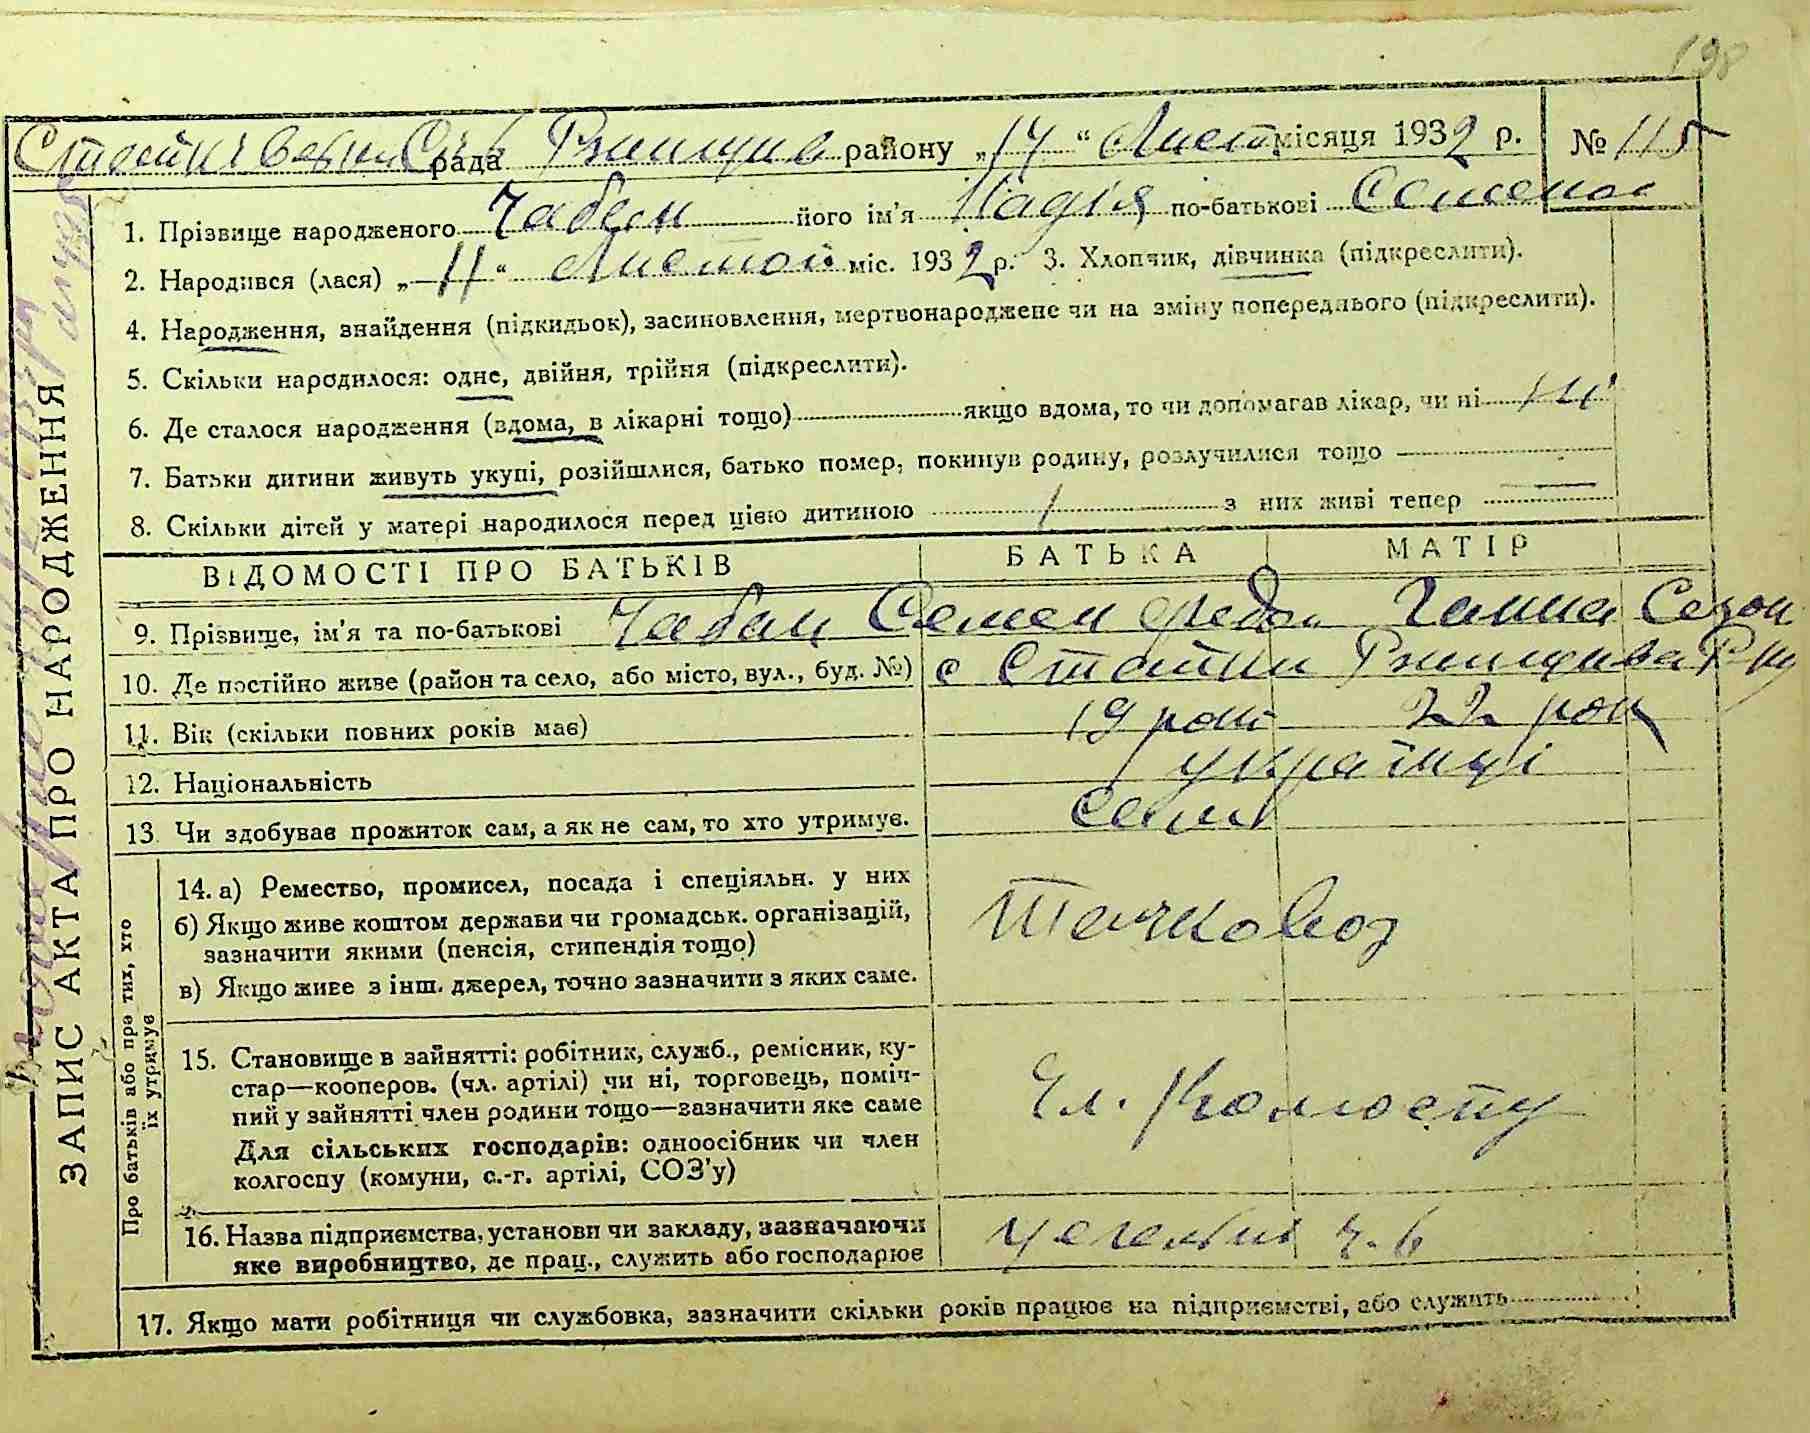 198
рада Ржищив району „14" Лист місяця 1932 р. № 115
1. Прізвище народженого Чабан його ім'я Надія по-батькові Семенов
2. Народився (лася) „11" Листой міс. 1932 р. 3. Хлопчик, дівчинка (підкреслити).
4. Народження, знайдення (підкидьок), засиновлення, мертвонароджене чи на зміну попереднього (підкреслити).
5. Скільки народилося: одне, двійня, трійня (підкреслити).
6. Де сталося народження (вдома, в лікарні тощо) якщо вдома, то чи допомагав лікар, чи ні ні
7. Батьки дитини живуть укупі, розійшлися, батько помер, покинув родину, розлучилися тощо —
8. Скільки дітей у матері народилося перед цією дитиною 1 з них живі тепер —
ЗАПИС АКТА ПРО НАРОДЖЕННЯ
ВІДОМОСТІ ПРО БАТЬКІВ БАТЬКА МАТІР
9. Прізвище, ім'я та по-батькові Чабан Семен Федо Ганна Сезон
10. Де постійно живе (район та село, або місто, вул., буд. №) с Стайки Ржищива Р-ну
11. Вік (скільки повних років має) 19 рокі 22 рок
12. Національність українці
13. Чи здобуває прожиток сам, а як не сам, то хто утримує. сам
Про батьків або про тих, хто
їх утримує
14. а) Ремество, промисел, посада і спеціяльн. у них
б) Якщо живе коштом держави чи громадськ. організацій,
зазначити якими (пенсія, стипендія тощо) Тачковоз
в) Якщо живе з інш. джерел, точно зазначити з яких саме.
15. Становище в зайнятті: робітник, служб., ремісник, ку-
стар—кооперов. (чл. артілі) чи ні, торговець, поміч-
ний у зайнятті член родини тощо—зазначити яке саме Чл. Колгоспу
Для сільських господарів: одноосібник чи член
колгоспу (комуни, с.-г. артілі, СОЗ'у)
16. Назва підприємства, установи чи закладу, зазначаючи
яке виробництво, де прац., служить або господарює
17. Якщо мати робітниця чи службовка, зазначити скільки років працює на підприємстві, або служить